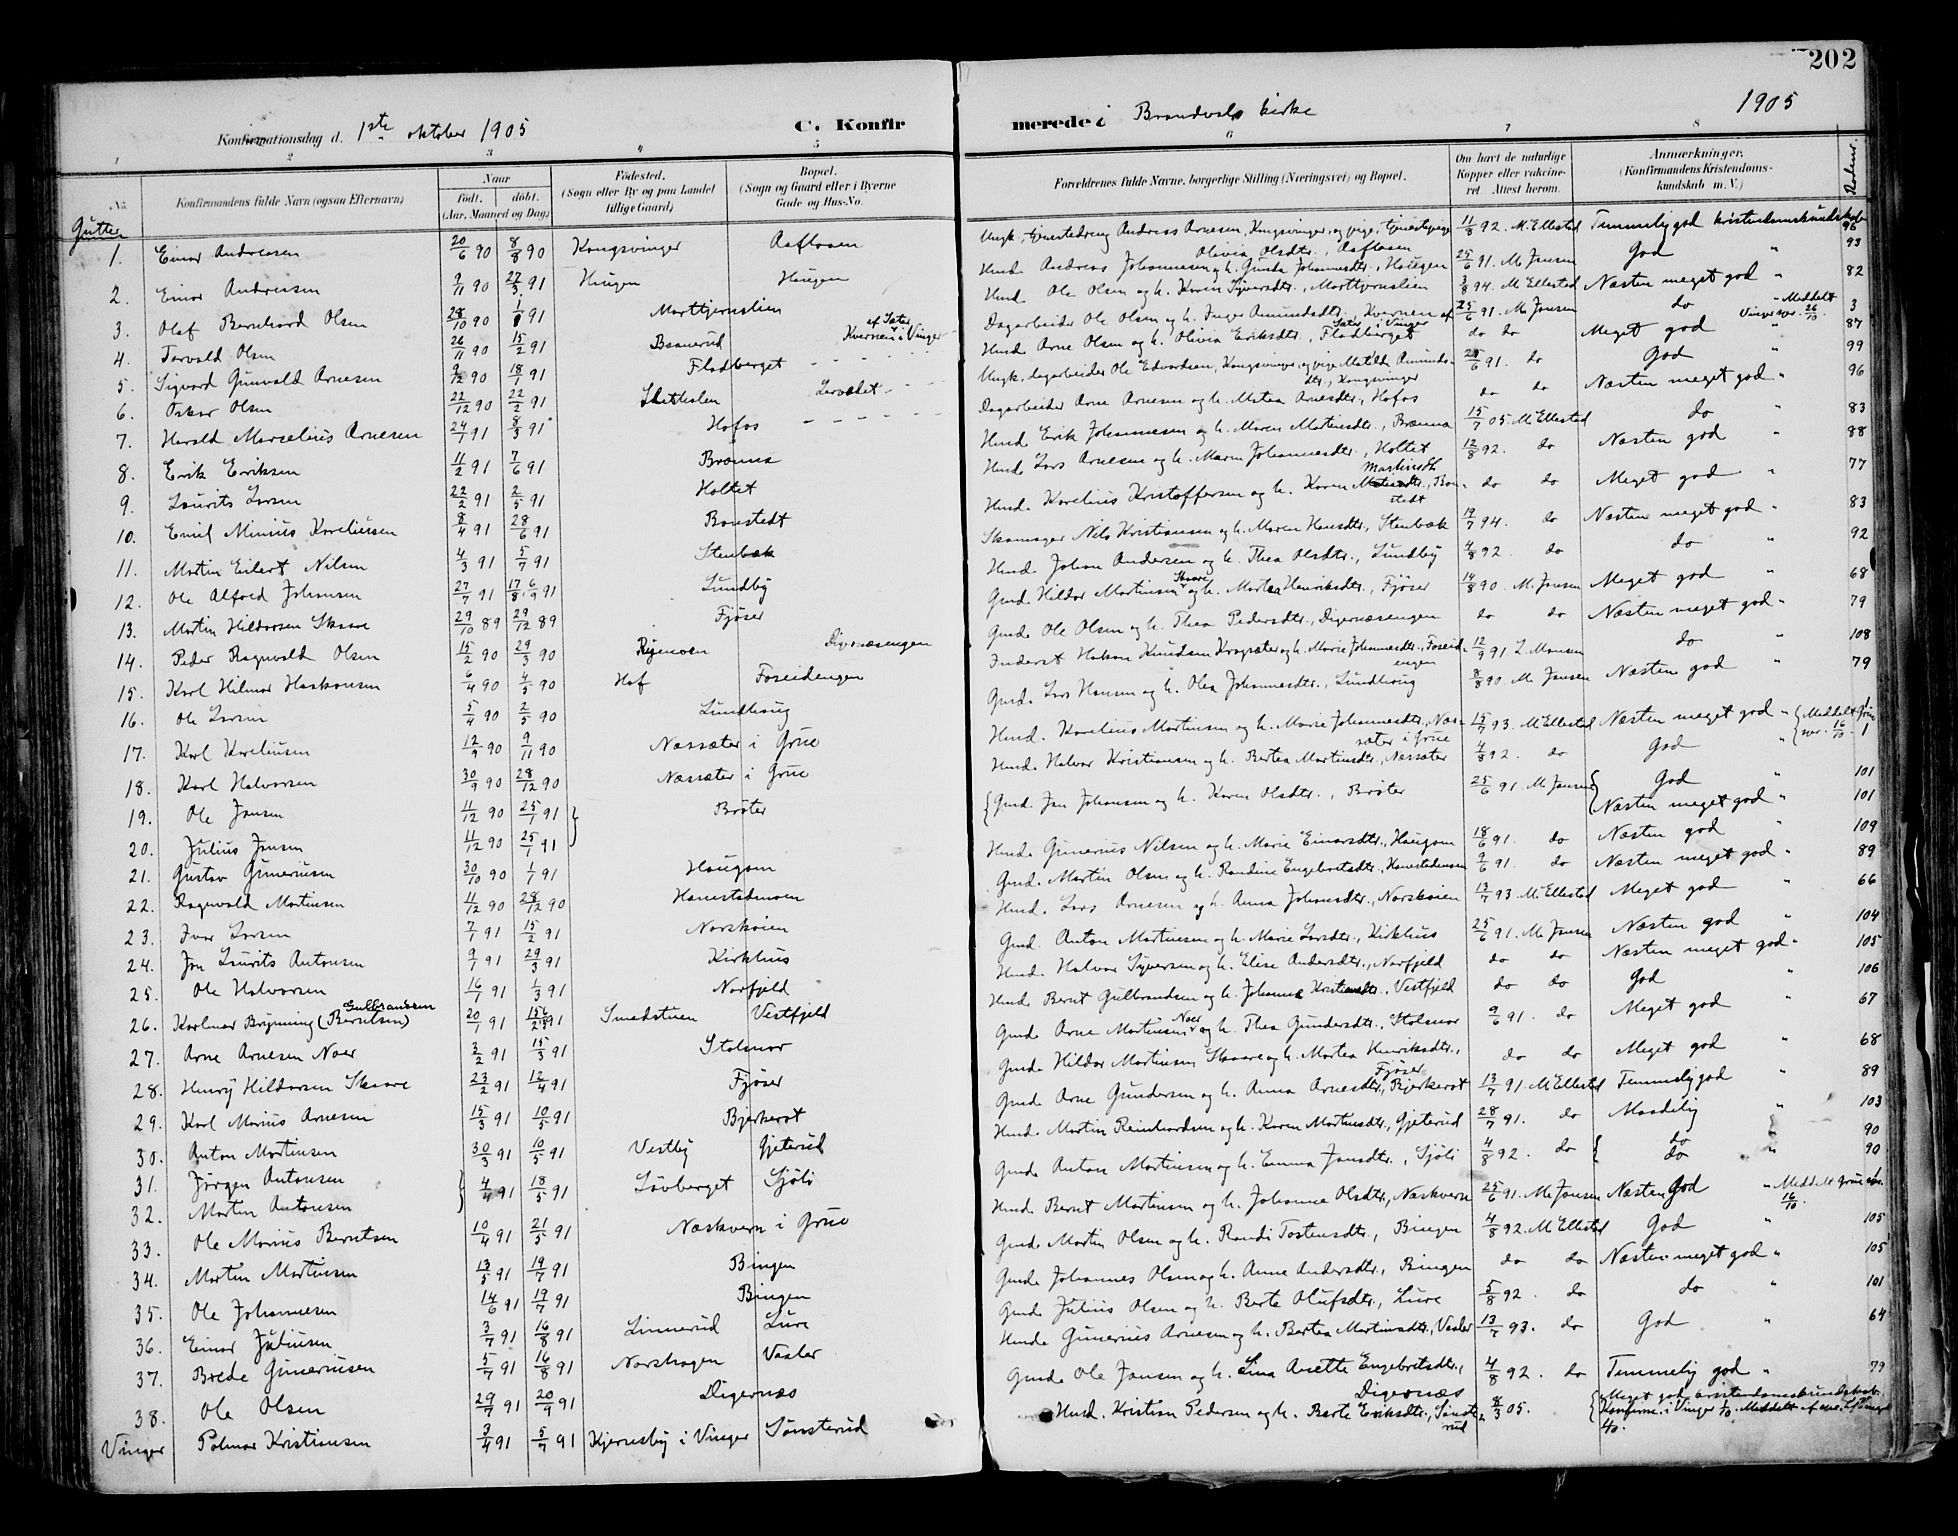 202
Konfirmationsdag d. 1ste oktober 1905 C. Konfirmerede i Brandvals kirke 1905
1 2 3 4 5 6 7 8
No.
Konfirmandens fulde Navn (ogsaa Efternavn)
Naar
født. døbt.
(Aar, Maaned og Dag)
Fødested.
(Sogn eller By og paa Landet tillige Gaard)
Bopæl.
(Sogn og Gaard eller i Byerne Gade og Hus-No.
Forældrenes fulde Navne, borgerlige Stilling (Næringsvei) og Bopæl.
Om havt de naturlige Kopper eller vaccineret Attest herom.
Anmærkninger.
(Konfirmandens Kristendomskundskab m. V.)
Gutter
1. Einar Andreasen 20/6 90 8/8 90 Kongsvinger Aaflosen Ungk., tjenestedreng Andreas Arnesen, Kongsvinger, og pige, tjenestepige Olivia Olsdtr., Aaflosen 11/8 92. M. Ellestad Temmelig god kristendomskundskab 96
2. Einar Andreasen 9/11 90 27/3 91 Haugen Haugen Husmd. Andreas Johannesen og h. Gunda Johannesdtr., Haugen 25/6 91. M. Jensen God " 93
3. Olaf Bernhard Olsen 28/10 90 1/1 91 Morttjernslien Husmd. Ole Olsen og h. Karen Syversdtr., Morttjernslien 3/8 94. M. Ellestad Næsten meget god " 82
4. Torvald Olsen 26/11 90 15/2 91 Branerud Kvernen af Sæter i Vinger Dagarbeider Ole Olsen og h. Inger Amundsdtr., Kvernen af Sæter i Vinger 25/6 91. M. Jensen do " Meddelt Vinger spr. 26/10 3
5. Sigvard Gunvald Arnesen 9/12 90 18/1 91 Fladberget Husmd. Arne Olsen og h. Olivia Eriksdtr., Fladberget do do Meget god " 87
6. Oskar Olsen 22/12 90 22/2 91 Ungk. dagarbeider Ole Edvardsen, Kongsvinger, og pige Matild. Amundsdtr., Kongsvinger 25/6 91. do God " 99
7. Harald Marselius Arnesen 24/1 91 8/3 91 Hofos Dagarbeider Arne Arnesen og h. Matea Arnesdtr., Hofos do do Næsten meget god " 96
8. Erik Eriksen 11/2 91 7/6 91 Brænna Husmd. Erik Johannesen og h. Maren Martinsdtr., Brænna 15/7 05. M. Ellestad do " 83
9. Laurits Larsen 22/2 91 2/5 91 Holtet Husmd. Lars Arnesen og h. Maren Johannesdtr., Holtet 12/8 92. do Næsten god " 88
10. Emil Minius Kareliusen 8/4 91 28/6 91 Baustedt Husmd. Karelius Kristoffersen og h. Karen Martinsdtr., Baustedt do do Meget god " 77
11. Martin Eilert Nilsen 4/3 91 5/7 91 Stenbæk Skomager Nils Kristiansen og h. Maren Hansdtr., Stenbæk 19/7 94. do Næsten meget god " 83
12. Ole Alfred Johansen 27/7 91 17/8, 6/9 91 Lundby Husmd. Johan Andersen og h. Thea Olsdtr., Lundby 4/8 92. do do " 92
13. Martin Hildarsen Skaare 29/10 89 29/12 89 Fjøser Gmd. Hildar Martinsen Skaare og h. Martea Henriksdtr., Fjøser 14/8 90 M. Jensen Meget god " 68
14. Peder Ragnvald Olsen 15/2 90 29/3 90 Rijenoen Digernæsengen Gmd. Ole Olsen og h. Thea Pedersdtr., Digernæsengen do do Næsten meget god " 79
15. Karl Hilmar Haakonsen 6/4 90 4/5 90 Hof Foseidengen Inderst Hakon Knudsen Krogsæter og h. Marie Johannesdtr., Foseidengen 12/9 91 L. Monsen do " 108
16. Ole Larsen 5/4 90 2/5 90 Lundhaug Gmd. Lars Hansen og h. Olea Johannesdtr., Lundhaug 8/8 90 M. Jensen Næsten god " 79
17. Karl Kareliusen 12/9 90 9/11 90 Næssæter i Grue Husmd. Karelius Martinsen og h. Marie Johannesdtr., Næssæter i Grue 15/7 93. M. Ellestad Næsten meget god " Meddelt Grue spr. 16/10. 1
18. Karl Halvorsen 30/9 90 28/12 90 Næssæter i Grue Husmd. Halvor Kristiansen og h. Bertea Martinsdtr., Næssæter 4/8 92. do God "
19. Ole Jansen 11/12 90 25/1 91 Brøter Gmd. Jan Johansen og h. Karen Olsdtr., Brøter 25/6 91. M. Jensen God " 101
20. Julius Jansen 11/12 90 25/1 91 Næsten meget god " 101
21. Gustav Gunerius​en 30/10 90 1/1 91 Haugom Husmd. Gunerius Nilsen og h. Marie Einarsdtr., Haugom 18/6 91. do Næsten god " 109
22. Ragnvald Martinsen 11/12 90 28/12 90 Hanestadmoen Gmd. Martin Olsen og h. Randine Engebretsdtr., Hanestadmoen 9/6 91. do Næsten meget god " 89
23. Ivar Larsen 7/1 91 15/2 91 Norskoien Husmd. Lars Arnesen og h. Anna Johansdtr., Norskoien 13/7 93. M. Ellestad Meget god " 66
24. Jan Laurits Antonsen 9/1 91 29/3 91 Kirkhus Gmd. Anton Martinsen og h. Marie Larsdtr., Kirkhus 25/6 91. M. Jensen Næsten god " 104
25. Ole Halvorsen 16/1 91 1/3 91 Norfjeld Husmd. Halvor Syversen og h. Elise Andersdtr., Norfjeld do do Næsten meget god " 105
26. Karlmar Brynning (Berntsen) Gulbrandsen 20/1 91 Smedstuen Vestfjeld Husmd. Bernt Gulbrandsen og h. Johanne Kristiansdtr., Vestfjeld do do God " 106
27. Arne Arnesen Noer 3/2 91 15/3 91 Stolsnor Gmd. Arne Martinsen Noer og h. Thea Gundersdtr., Stolsnor 9/6 91. do Meget god " 67
28. Henry Hildarsen Skaare 23/2 91 12/4 91 Fjøser Gmd. Hildar Martinsen Skaare og h. Martea Henriksdtr., Fjøser do do Meget god " 68
29. Karl Marius Arnesen 15/3 91 10/5 91 Bjerkerøt Gmd. Arne Gundersen og h. Anna Arnesdtr., Bjerkerøt 13/7 91. M. Ellestad Temmelig god " 89
30. Anton Martinsen 30/3 91 10/5 91 Vestby Gjeterud Husmd. Martin Reinhardsen og h. Karen Martinsdtr., Gjeterud 28/7 91. do Maadelig " 103
31. Jørgen Antonsen 4/4 91 18/5 91 Løvberget Sjøli Gmd. Anton Martinsen og h. Emma Jansdtr., Sjøli 4/8 92. do do " 90
32. Martin Antonsen do " 90
33. Ole Marius Berntsen 10/4 91 21/5 91 Næskvern i Grue Husmd. Bernt Martinsen og h. Johanne Olsdtr., Næskvern 25/6 91. M. Jensen Næsten God " Meddelt Grue spr. 16/10.
34. Martin Martinsen 13/5 91 19/7 91 Bingen Gmd. Martin Olsen og h. Randi Tostensdtr., Bingen 4/8 92. M. Ellestad God " 105
35. Ole Johannesen 14/6 91 19/7 91 Bingen Gmd. Johannes Olsen og h. Anne Andersdtr., Bingen do do Næsten meget god " 105
36. Einar Juliusen 3/7 91 16/8 91 Linnerud Lure Gmd. Julius Olsen og h. Berte Olufsdtr., Lure 5/8 92. do do " 101
37. Brede Guneriusen 5/7 91 16/8 91 Norshagen Vaaler Husmd. Gunerius Arnesen og h. Bertea Martinsdtr., Vaaler 13/7 93. do God " 64
38. Ole Olsen 29/7 91 20/9 91 Digernæs Gmd. Ole Jansen og h. Lina Anette Engebretsdtr., Digernæs 4/8 92. do Temmelig god " 79
Vinger Polmar Kristiansen 3/4 91 5/7 91 Kjernsby i Vinger Sønsterud Husmd. Kristian Pedersen og h. Berte Eriksdtr., Sønsterud 8/3 05. Meget god kristendomskundskab. Konfirm. i Vinger 1/10. Meddelt af